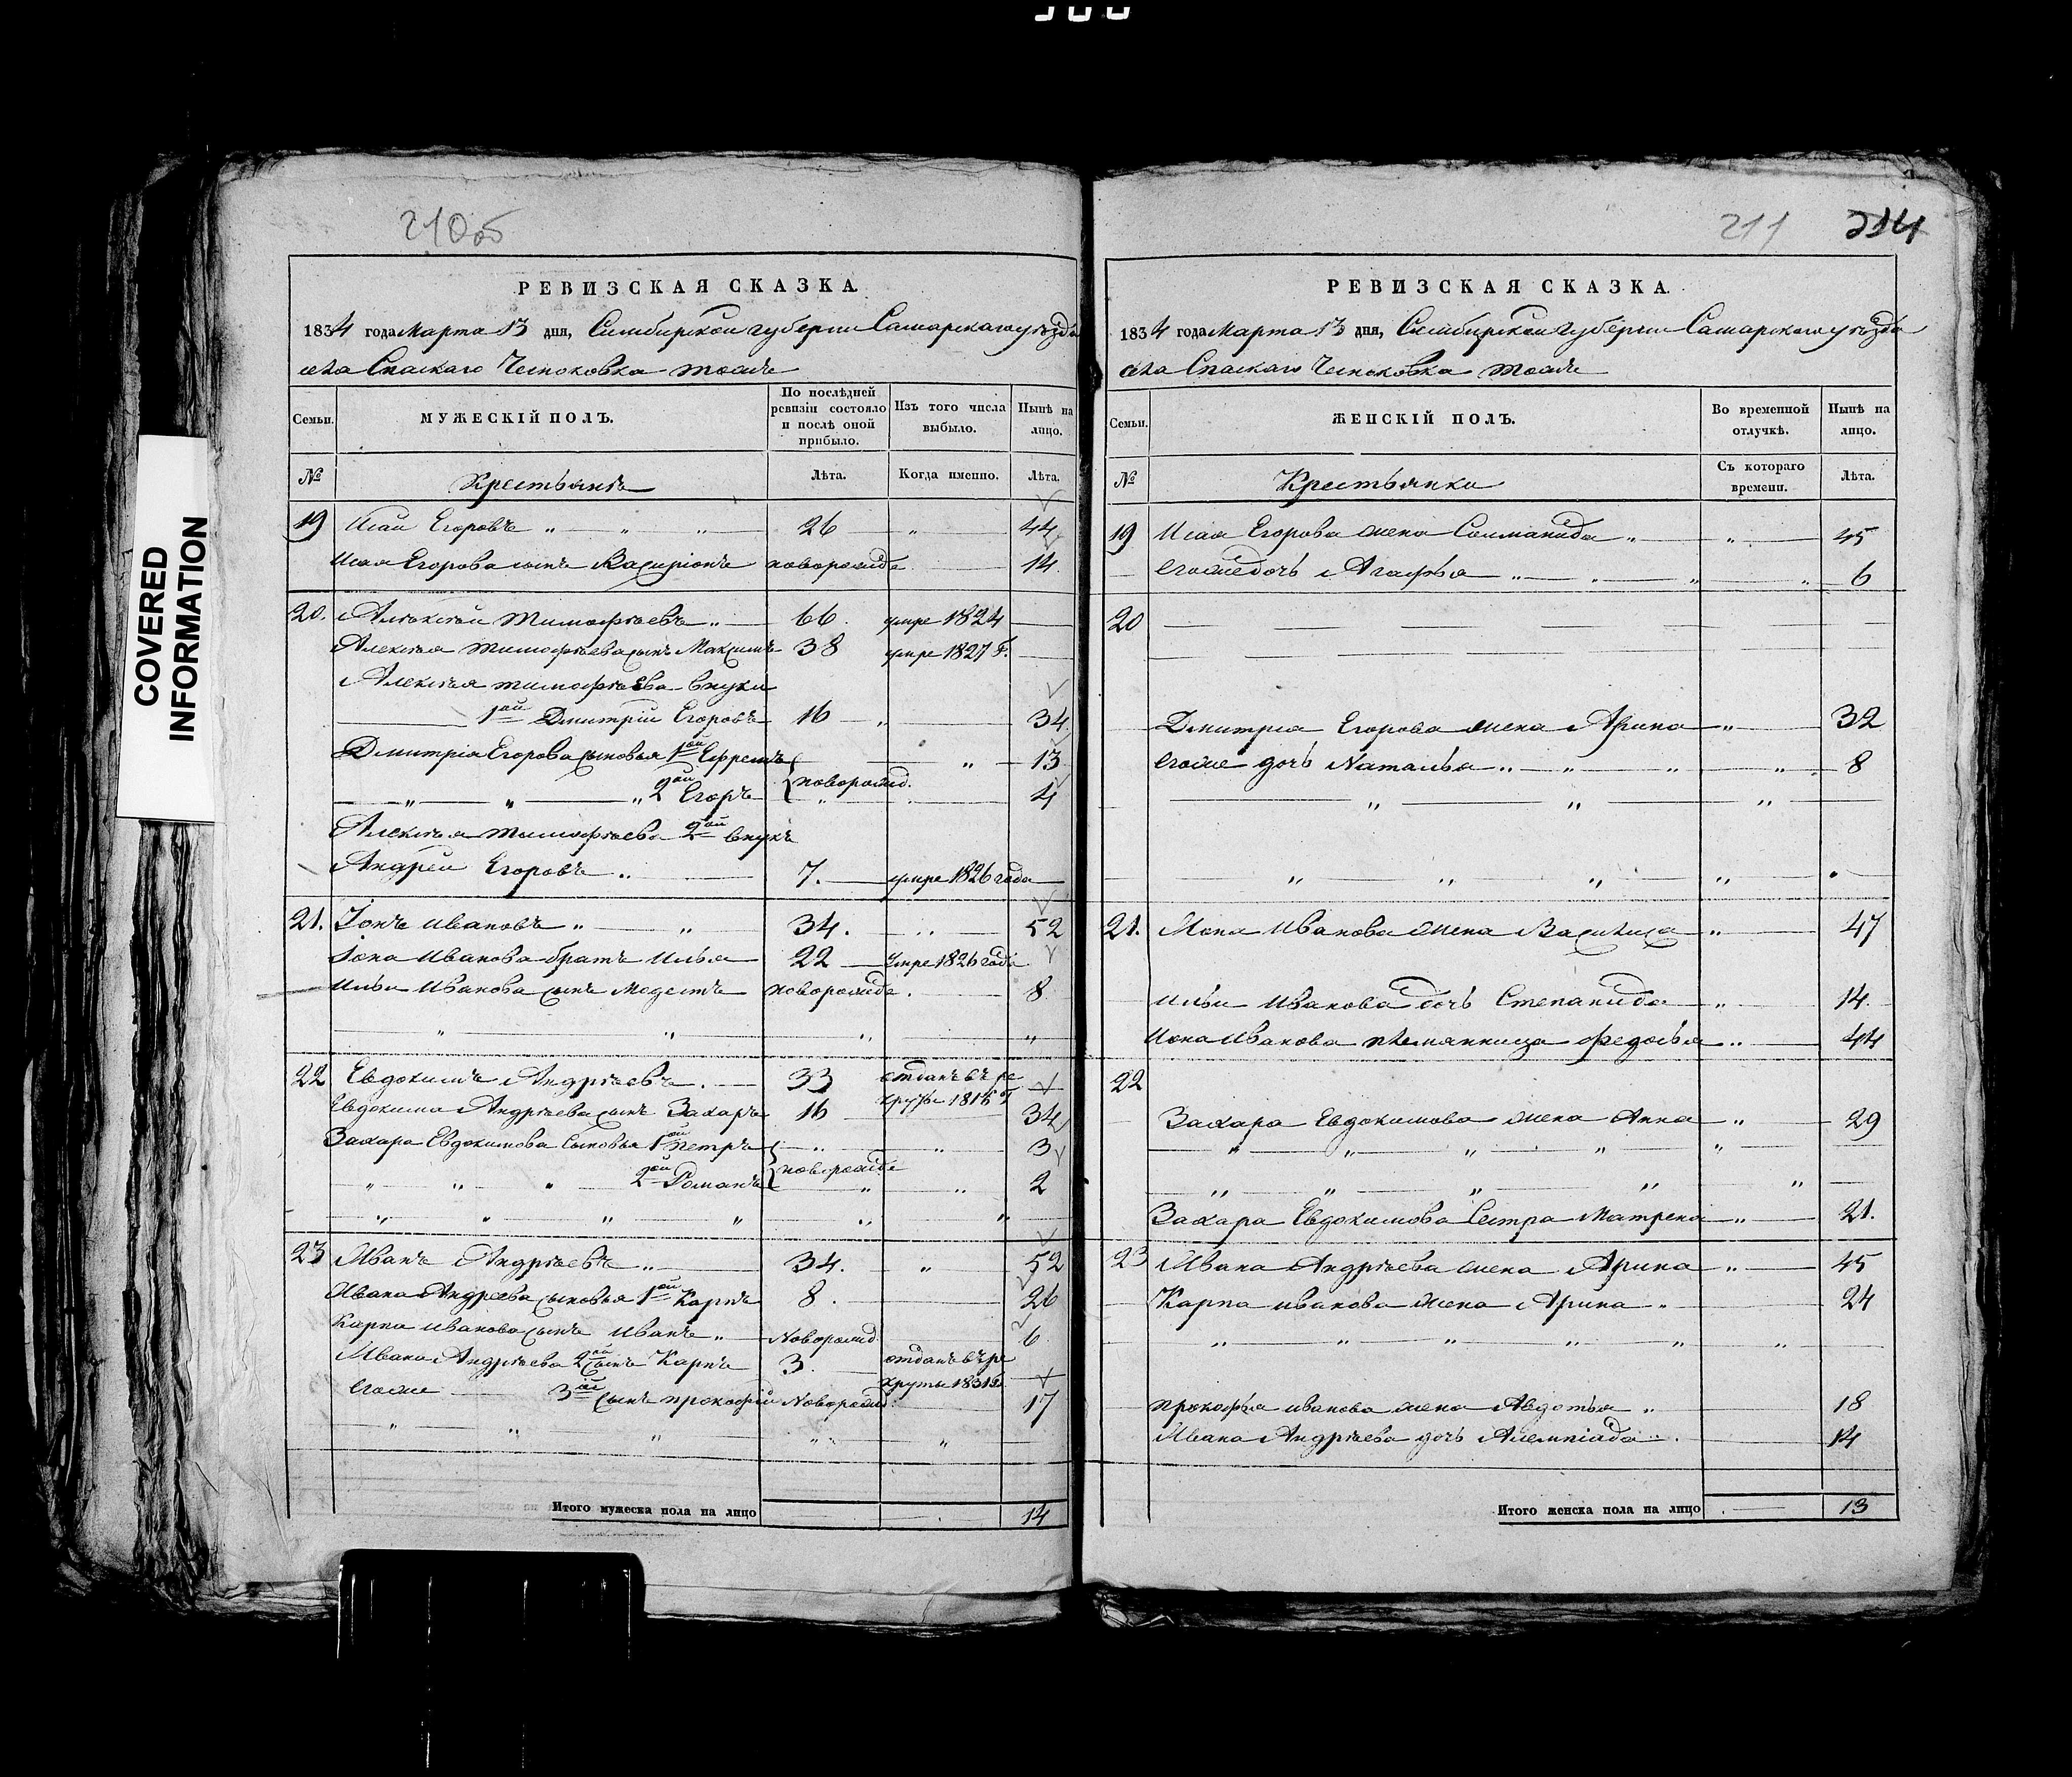 COVERED
INFORMATION
210об
РЕВИЗСКАЯ СКАЗКА.
1834 года Марта 13 дня, Симбирской губерни Самарскаго уезда
села Спаскаго Чесноковка тожъ
Семьи. МУЖЕСКІЙ ПОЛЪ. По послѣдней ревизіи состояло и послѣ оной прибыло. Изъ того числа выбыло. Нынѣ на лицо.
№ Крестьянъ Лѣта. Когда именно. Лѣта.
19 Исай Егоровъ „ „ „ 26 „ 44
Исая Егорова сынъ новорожде 14
20. Алѣксѣй Тимофѣевъ „ 66. умре 1824
Алексѣя Тимофѣева сынъ Максимъ 38 умре 1827 г.
Алексѣя тимофѣева внуки
1ой Дмитрій Егоровъ 16 „ 34
Дмитрія Егорова сыновья 1ой Ефремъ „ 13
„ „ „ 2ой Егоръ новорожд. 4
Алексѣя Тимофѣева 2ой внукъ
Андрей Егоровъ „ 7. умре 1826 года
21. Іонъ Ивановъ „ „ 34. „ 52
Іона Иванова братъ Илья 22 умре 1826 года
Ильи Иванова сынъ Модестъ новорожде 8
„ „ „ „
22 Евдокимъ Андрѣевъ. 33 отданъ въ ре
круты
Евдокима Андрѣева сынъ Захаръ 16 34
Захара Евдокимова Сыновья 1ой Петръ „ „ 3
„ „ „ 2ой Романъ новорожде „ „ 2
„ „ „ „ „ „
23 Иванъ Андрѣевъ „ 34. „ 52
Ивана Андреева сыновья 1ой Карпъ 8. 26
Карпа Иванова сынъ Иванъ „ Новорожд. 6
Ивана Андрѣева 2ой сынъ Карпъ 3. отданъ въ ре
круты 1831 г.
Егоже 3ой сынъ прокофій Новорожд. 17
„ „ „ „ „
Итого мужеска пола на лицо 14
211 214
РЕВИЗСКАЯ СКАЗКА.
1834 года Марта 13 дня, Симбирской Губерни Самарскаго уезда
села Спаскаго Чесноковка тожъ
Семьи. ЖЕНСКІЙ ПОЛЪ. Во временной отлучкѣ. Нынѣ на лицо.
№ Крестьянки Съ котораго времени. Лѣта.
19 Исая Егорова жена Соломанида „ „ 45
Егоже дочь Агафья „ „ „ „ 6
20
Дмитрія Егорова жена Арина „ 32
Егоже дочь Наталья „ „ „ „ 8
„ „ „
„ „ „ „
21. Иона Иванова жена Василиса „ 47
Ильи Иванова дочь Степанида „ 14.
Иона Иванова племянница Федосья „ 44
22
Захара Евдокимова жена Анна „ 29
„ „ „ „ „
„ „ „ „ „
Захара Евдокимова Сестра Матрена „ 21.
23 Ивана Андрѣева жена Арина „ 45
Карпа Иванова жена Арина „ 24
„ „ „ „ „ „
прокофья иванова жена Авдотья „ 18
Ивана Андрѣева дочь Алемпіада „ 14
Итого женска пола на лицо 13